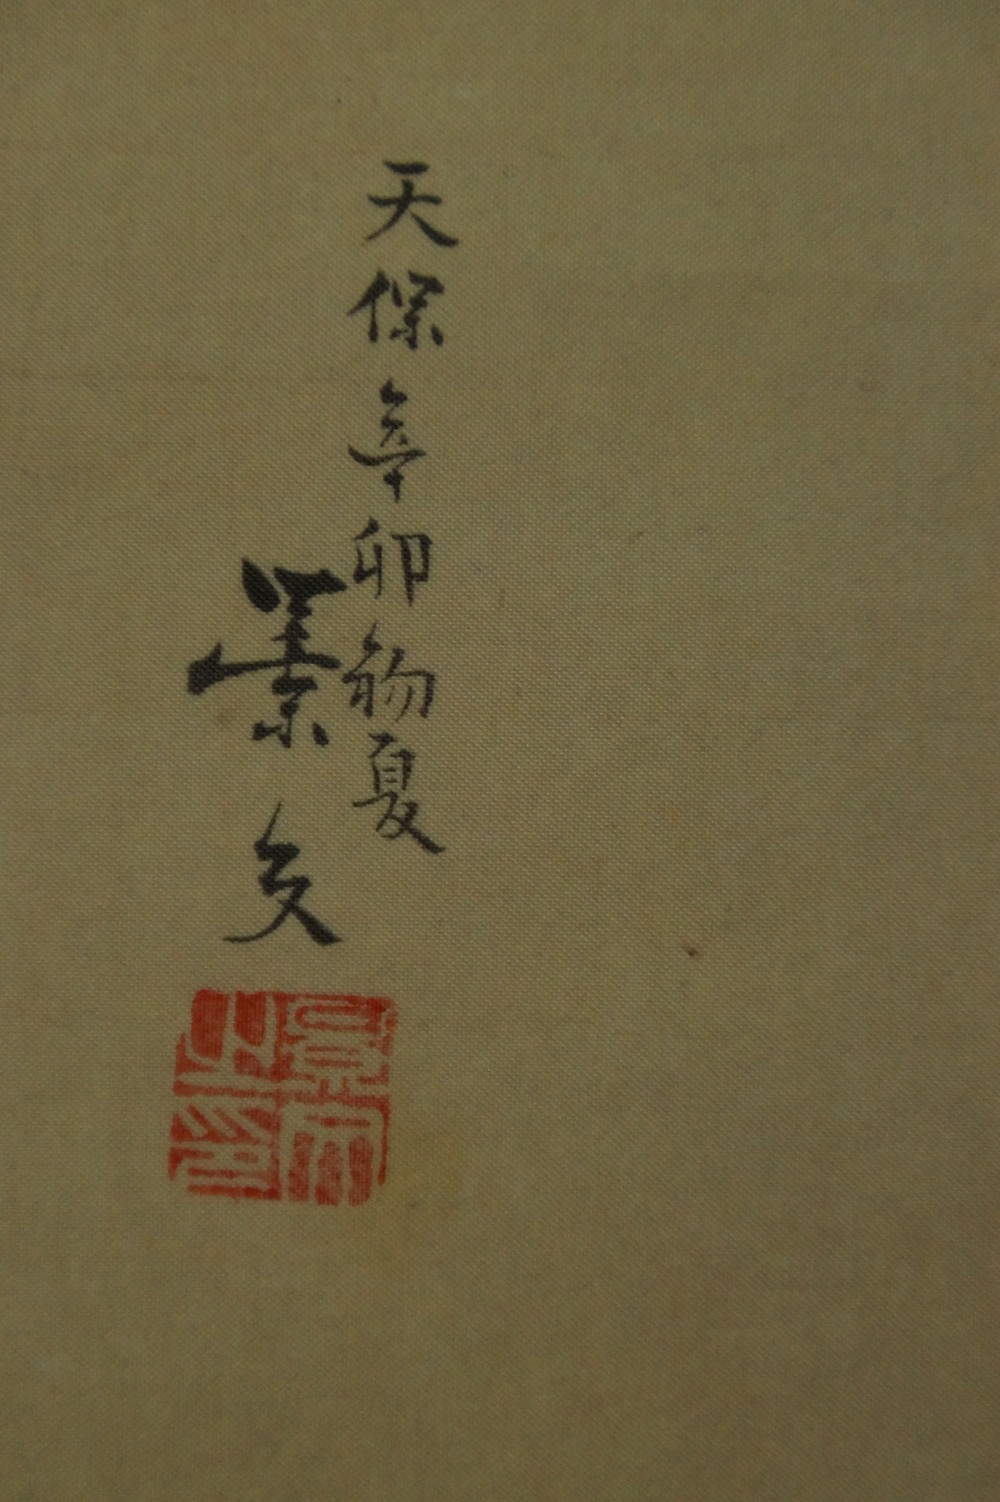 天保辛卯初夏
景文
景文之印